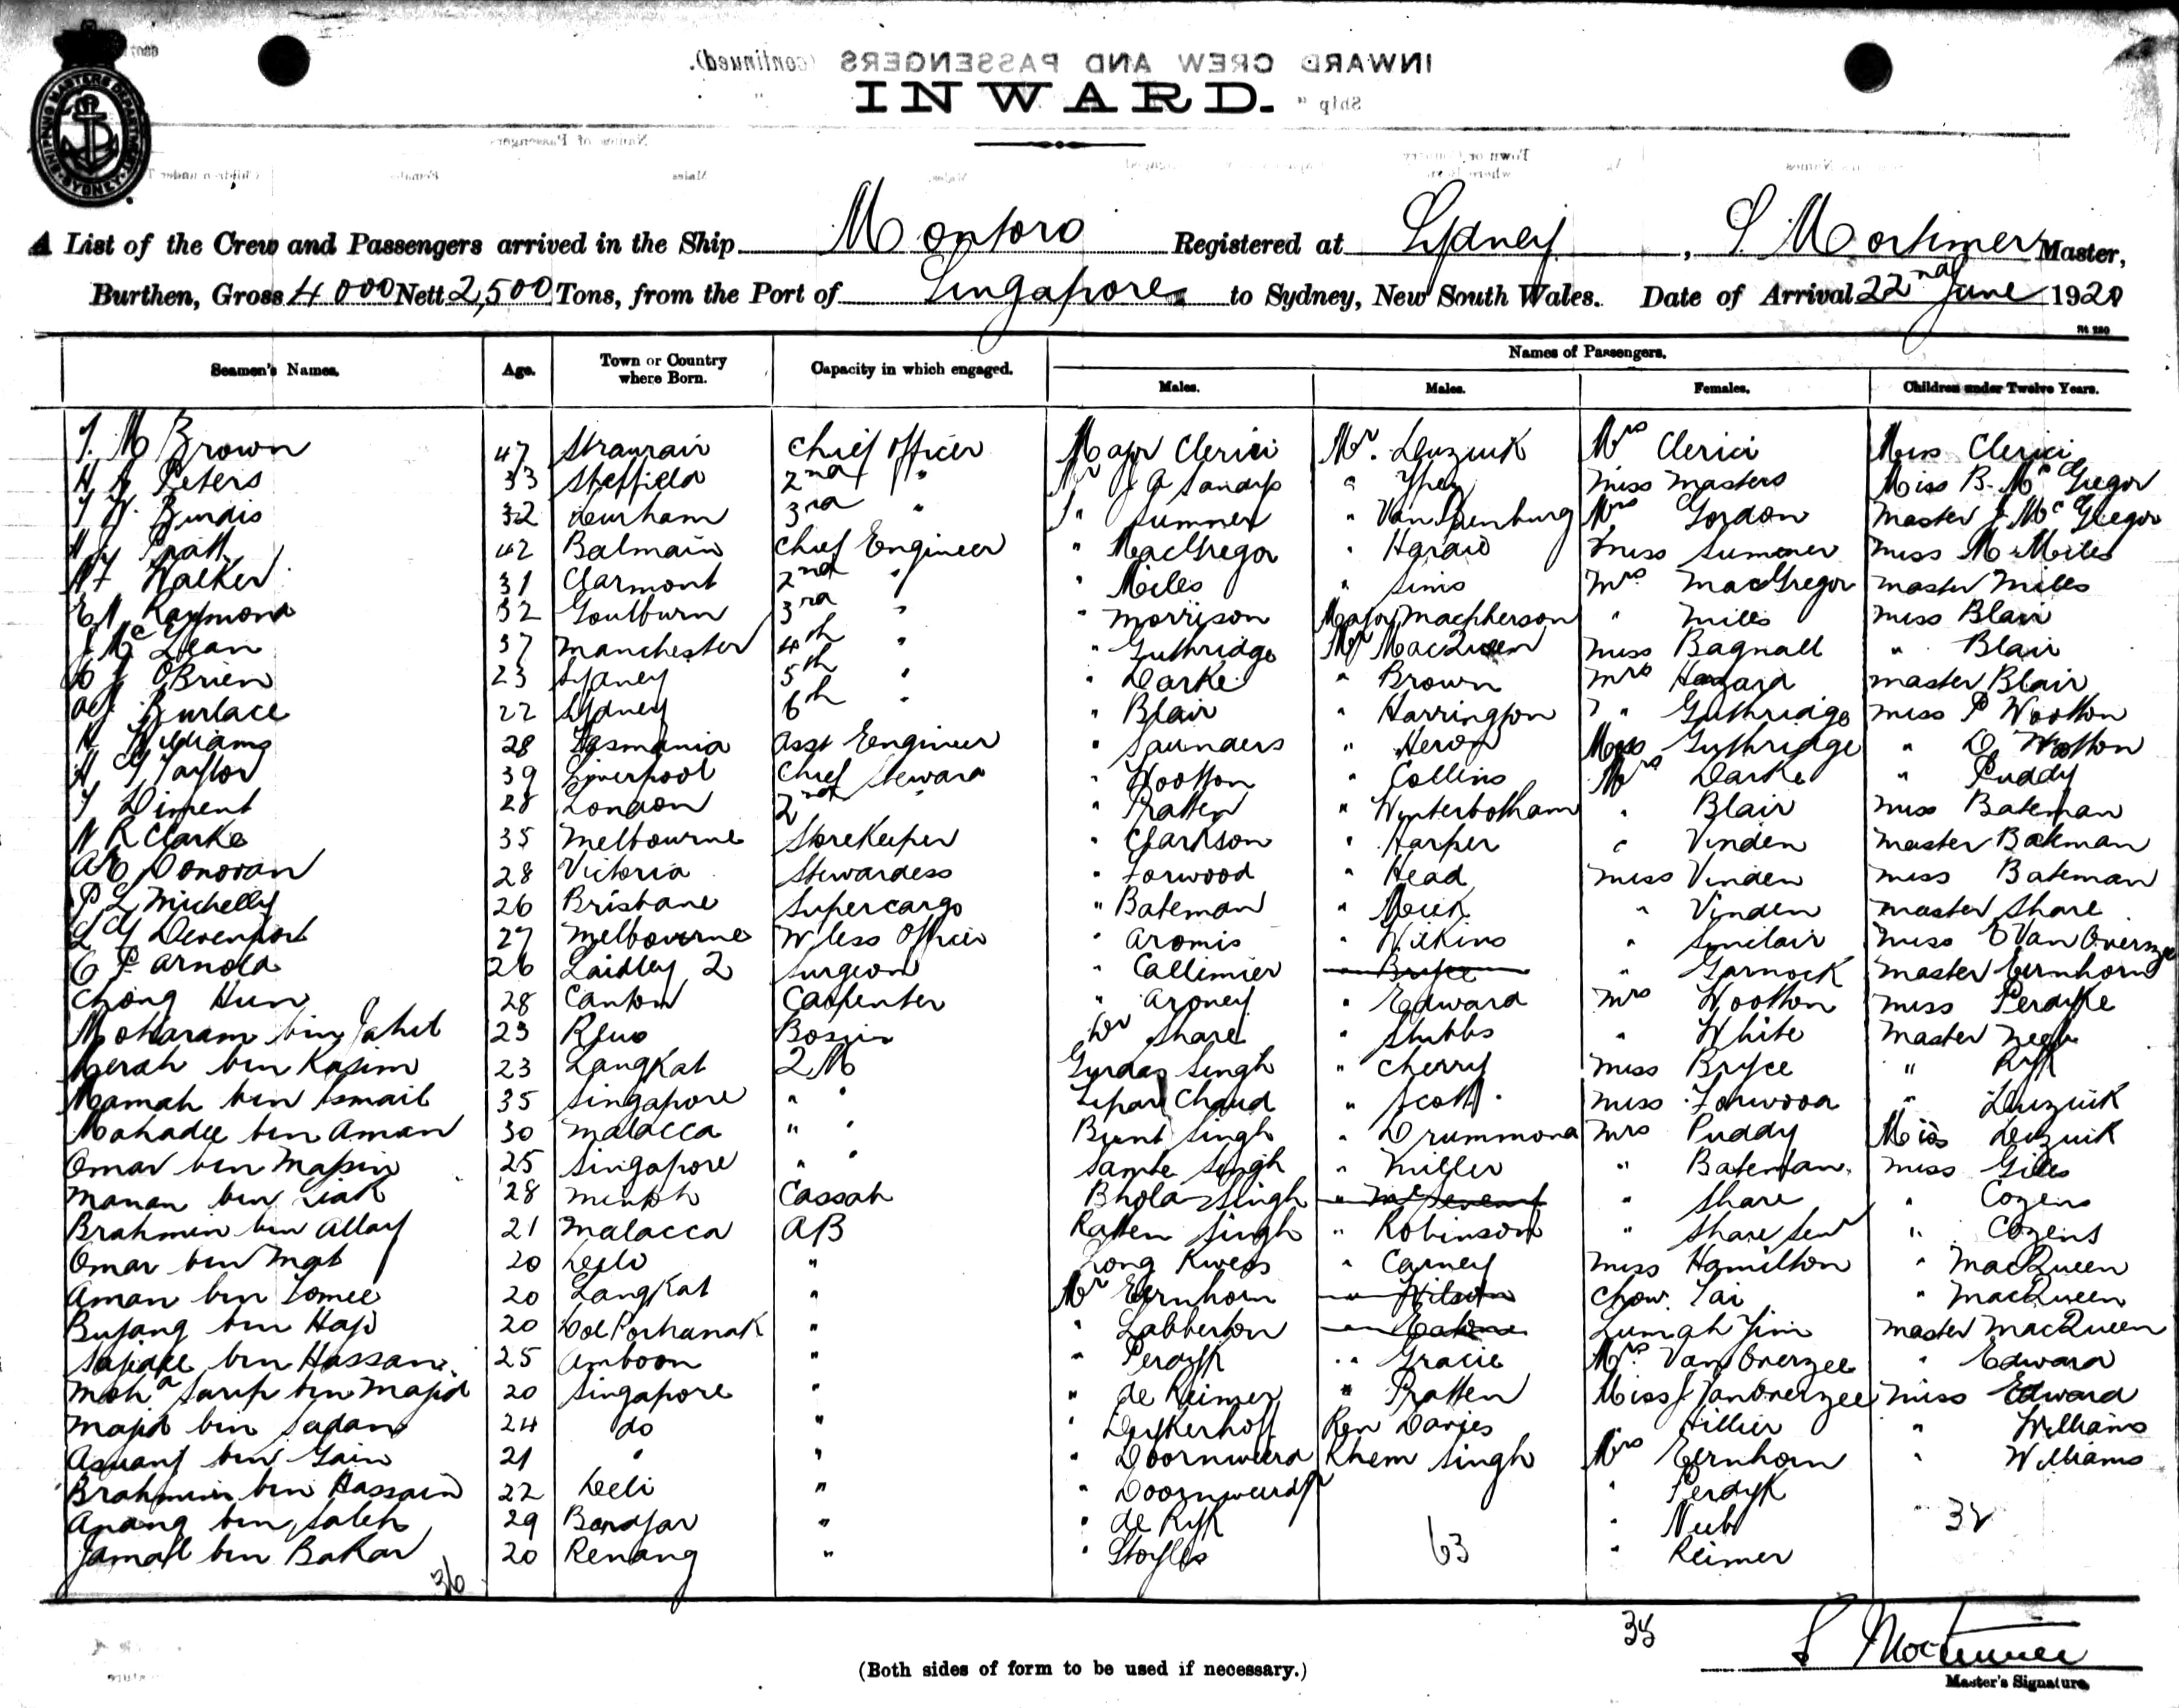 INWARD CREW AND PASSENGERS (continued).
INWARD.
SHIPPING MASTERS DEPARTMENT SYDNEY
A List of the Crew and Passengers arrived in the Ship Montoro Registered at Sydney, S Mortimer Master,
Burthen, Gross 4000 Nett 2,500 Tons, from the Port of Singapore to Sydney, New South Wales. Date of Arrival 22nd June 1920
Names of Passengers.
Seamen's Names. Age. Town or Country where Born. Capacity in which engaged. Males. Males. Females. Children under Twelve Years.
Brown 47 Stranrair Chief Officer Major Clerici Mr. Mrs Clerici Miss Clerici
Peters 33 Sheffield 2nd " Mr " Miss Masters Miss B. McGregor
Burdis 32 Durham 3rd " " Sumner " Mrs Gordon Master J McGregor
Pratt 42 Balmain Chief Engineer " MacGregor " Miss Sumner Miss M Miles
Walker 31 Clarmont 2nd " " Miles " Sims Mrs MacGregor Master Miles
Raymond 32 Goulburn 3rd " " Morrison Major Macpherson " Miles Miss Blair
37 Manchester 4th " " Guthridge Mr MacQueen Miss Bagnall " Blair
O'Brien 23 Sydney 5th " " Darke " Brown Mrs Hazard Master Blair
Burlace 22 Sydney 6th " " Blair " Harrington " Guthridge Miss P Wootton
H Williams 28 Tasmania Asst Engineer " Saunders " Heron Miss Guthridge " D Wootton
H G Taylor 39 Liverpool Chief Steward " Wootton " Collins Mrs Darke " Puddy
Diment 28 London 2nd " " Pratten " Winterbotham " Blair Miss Bateman
N R Clarke 35 Melbourne Storekeeper " Clarkson " Harper " Vinden Master Bateman
Donovan 28 Victoria Stewardess " Forwood " Head Miss Vinden Miss Bateman
P L Michelly 26 Brisbane Supercargo " Bateman " Meek " Vinden Master Share
Devenport 27 Melbourne W less Officer " Aromis " Wilkins " Sinclair Miss E Van Overzee
C P Arnold 26 Laidley Q Surgeon " Callimier " Bryce " Garnock Master Eernhorn
Chong Hun 28 Canton Carpenter " Aroney " Edward Mrs Wootton Miss Perdyke
Moharam bin Jahit 23 Bosun Dr Share " Stubbs " White Master Neeb
Merah bin Kasim 23 Langkat QM Gurdas Singh " Cherry Miss Bryce " Ryk
Mamah bin Ismail 35 Singapore " " Chand " Scott Miss Forwood "
Mahadee bin Aman 30 Malacca " " Bunt Singh " Drummond Mrs Puddy Miss
Omar bin Massin 25 Singapore " " Singh " Miller " Bateman Miss Giles
Manan bin Siah 28 Cassab Bhola Singh " " Share " Cozens
Brahmin bin Allay 21 Malacca AB Ratten Singh " Robinson " Share Senr " Cozens
Omar bin Mat 20 Deli " " Carney Miss Hamilton " MacQueen
Aman bin Tomee 20 Langkat " Mr Eernhorn " Wilson Chow Tai " MacQueen
Bujang bin Haji 20 " " Labberton " Lumah Jim Master MacQueen
bin Hassan 25 Amboon " " Perdyk " Gracie Mrs Van Overzee " Edward
Mohd Sarip bin Majid 20 Singapore " " de Reimer " Pratten Miss J Van Overzee Miss Edward
Majid bin Sadan 24 do " " Dyckerhoff Rev Davies " Hillier " Williams
Asuant bin Gain 21 " " " Doornweerd Khem Singh Mrs Eernhorn " Williams
Brahmin bin Hassain 22 Deli " " Doornweerd Jr " Perdyk
Anang bin Saleh 29 Bandjar " " de Ryk " Neeb 32
Jamail bin Bakar 20 Penang " " Stoyles 63 " Reimer
36
38
S Mortimer
(Both sides of form to be used if necessary.)
Master's Signature.